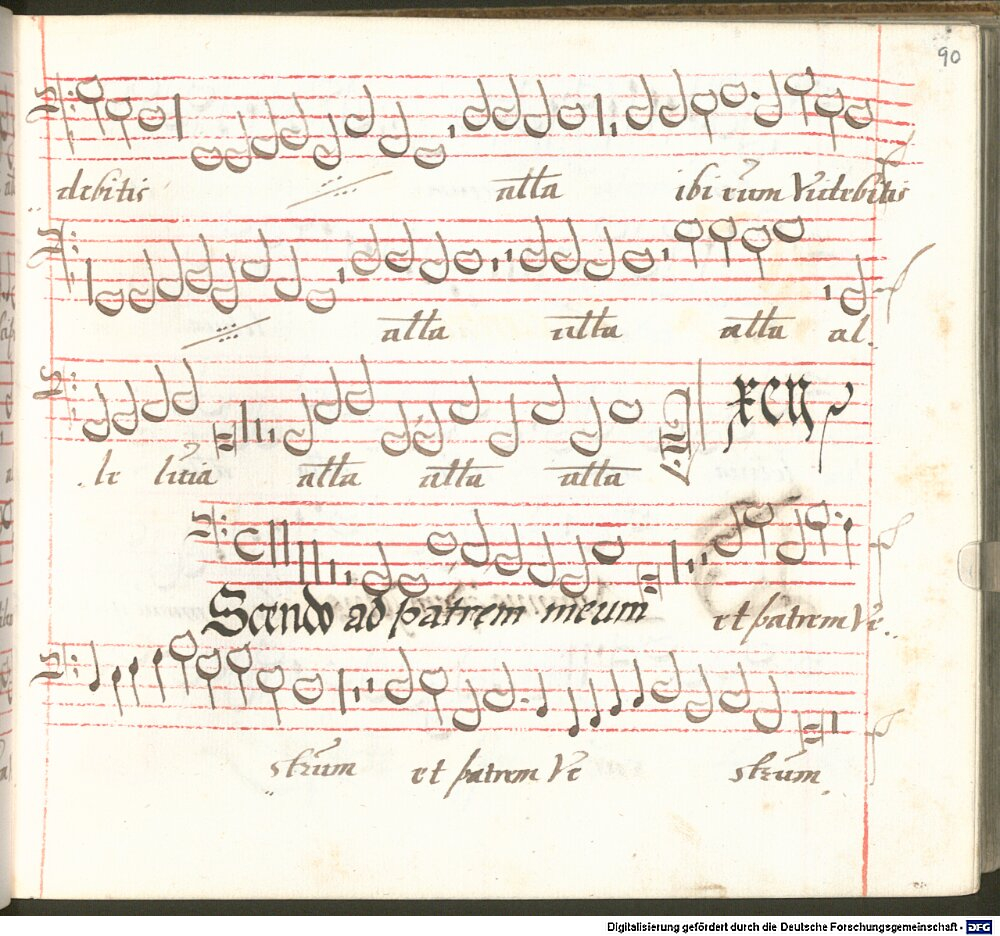 90
debitis alla ibi eum Videbitis
alla alla alla al
le luia alla alla alla xcij
Scendo ad patrem meum et patrem Ve
strum et patrem Ve strum
Digitalisierung gefördert durch die Deutsche Forschungsgemeinschaft - DFG